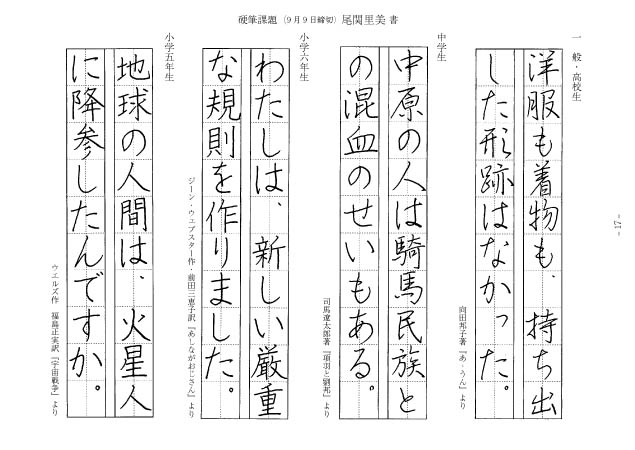 硬筆課題（９月９日締切）尾関里美 書
一般・高校生
洋服も着物も、持ち出
した形跡はなかった。
向田邦子著『あ・うん』より
中学生
中原の人は騎馬民族と
の混血のせいもある。
司馬遼太郎著『項羽と劉邦』より
小学六年生
わたしは、新しい厳重
な規則を作りました。
ジーン・ウェブスター作・前田三恵子訳『あしながおじさん』より
小学五年生
地球の人間は、火星人
に降参したんですか。
ウエルズ作 福島正実訳『宇宙戦争』より
- 17 -